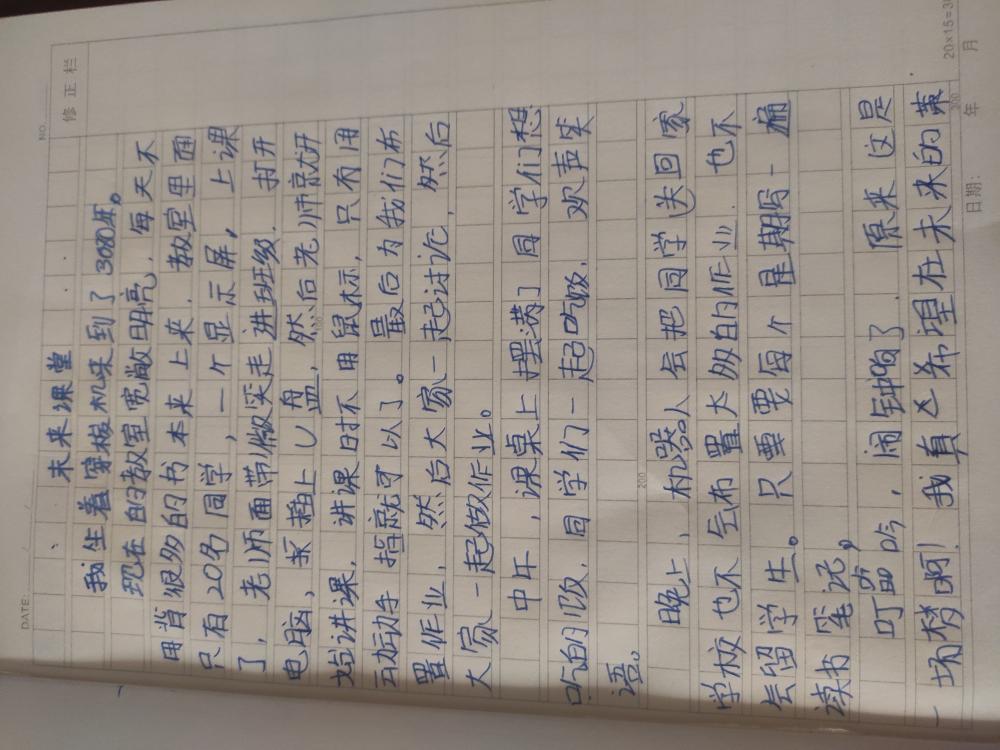 NO.
DATE:
修正栏
未来课堂
我坐着穿梭机来到了3080年。
现在的教室宽敞明亮,每天不
用背很多的书本来上来,教室里面
只有20名同学,一个显示屏,上课
了,老师面带微笑走进班级,打开
电脑,插上U盘,然后老师就开
始讲课,讲课时不用鼠标,只有用
动动手指就可以了。最后为我们布
置作业,然后大家一起讨论,然后
大家一起做作业。
中午,课桌上摆满了同学们想
吃的饭,同学们一起吃饭,欢声笑
语。
晚上,机器人会把同学送回家
学校也不会布置太多的作业,也不
会留学生。只要要每个星期写一篇
读书笔记。
叮当吟,闹钟响了,原来这是
一场梦啊!我真希望在未来的
200
300
20×15=3
日期: 年 月